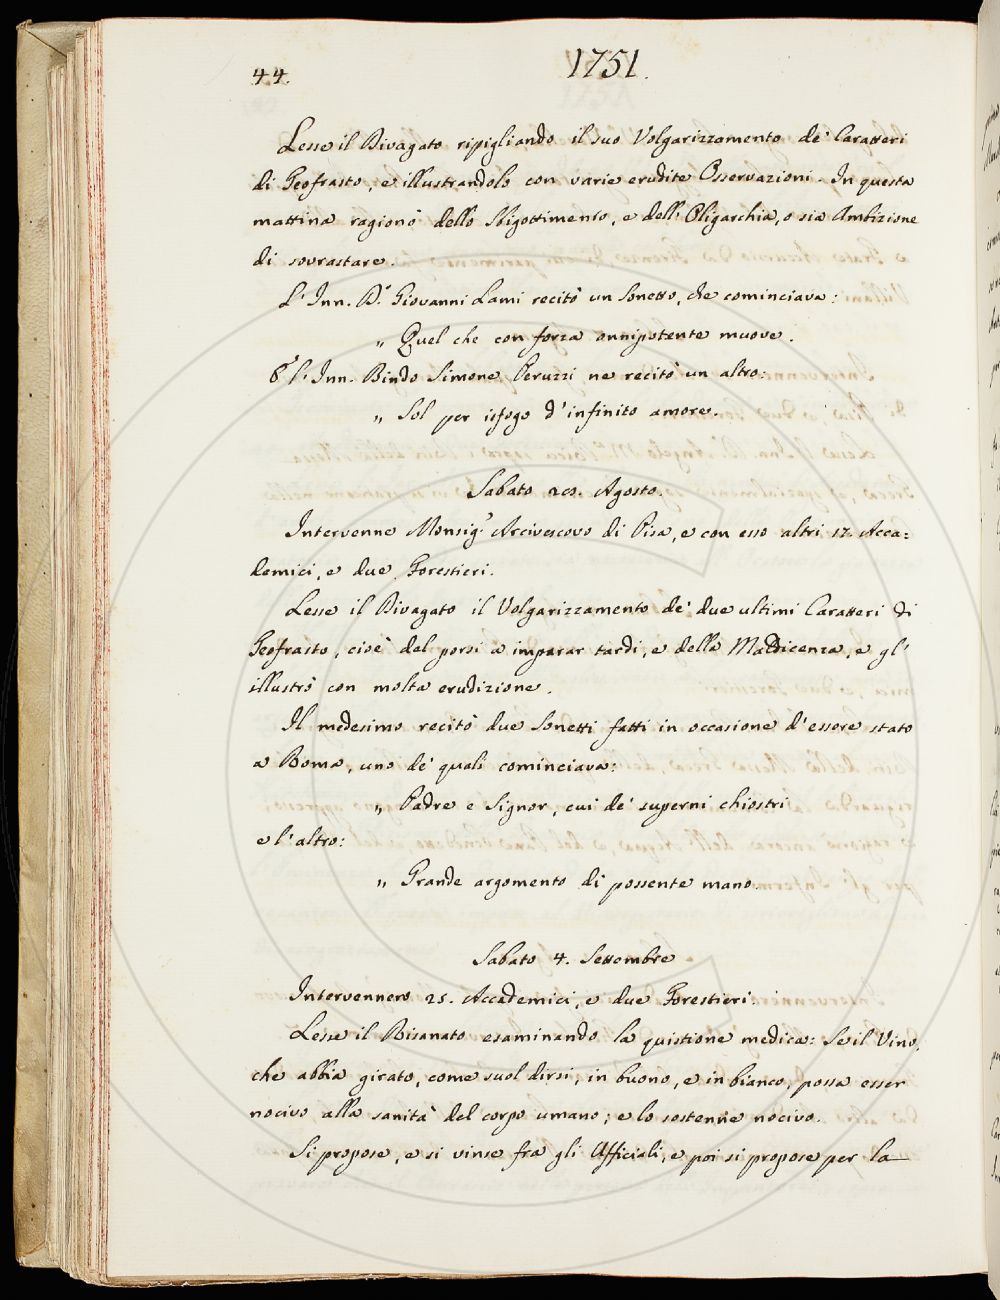 44.
1751.
Lesse il Divagato ripigliando il suo Volgarizzamento de' Caratteri
di Teofrasto, e illustrandolo con varie erudite Osservazioni. In questa
mattina ragionò dello Sbigottimento, e dell'Oligarchia, o sia Ambizione
di sovrastare.
L'Inn. D.r Giovanni Lami recitò un Sonetto, che cominciava:
„ Quel che con forza onnipotente muove.
E l'Inn. Bindo Simone Peruzzi ne recitò un altro:
„ Sol per isfogo d'infinito amore.
Sabato 28. Agosto.
Intervenne Monsig.r Arcivescovo di Pisa, e con esso altri 17. Acca=
demici, e due Forestieri.
Lesse il Divagato il Volgarizzamento de' due ultimi Caratteri di
Teofrasto, cioè del porsi a imparar tardi, e della Maldicenza, e gl'
illustrò con molta erudizione.
Il medesimo recitò due Sonetti fatti in occasione d'essere stato
a Roma, uno de' quali cominciava:
„ Padre e Signor, cui de' superni chiostri
e l'altro:
„ Grande argomento di possente mano.
Sabato 4. Settembre
Intervennero 25. Accademici, e due Forestieri.
Lesse il Risanato esaminando la quistione medica: Se il Vino,
che abbia girato, come suol dirsi, in buono, e in bianco, possa esser
nocivo alla sanità del corpo umano; e lo sostenne nocivo.
Si propose, e si vinse fra gli Uffiziali, e poi si propose per la